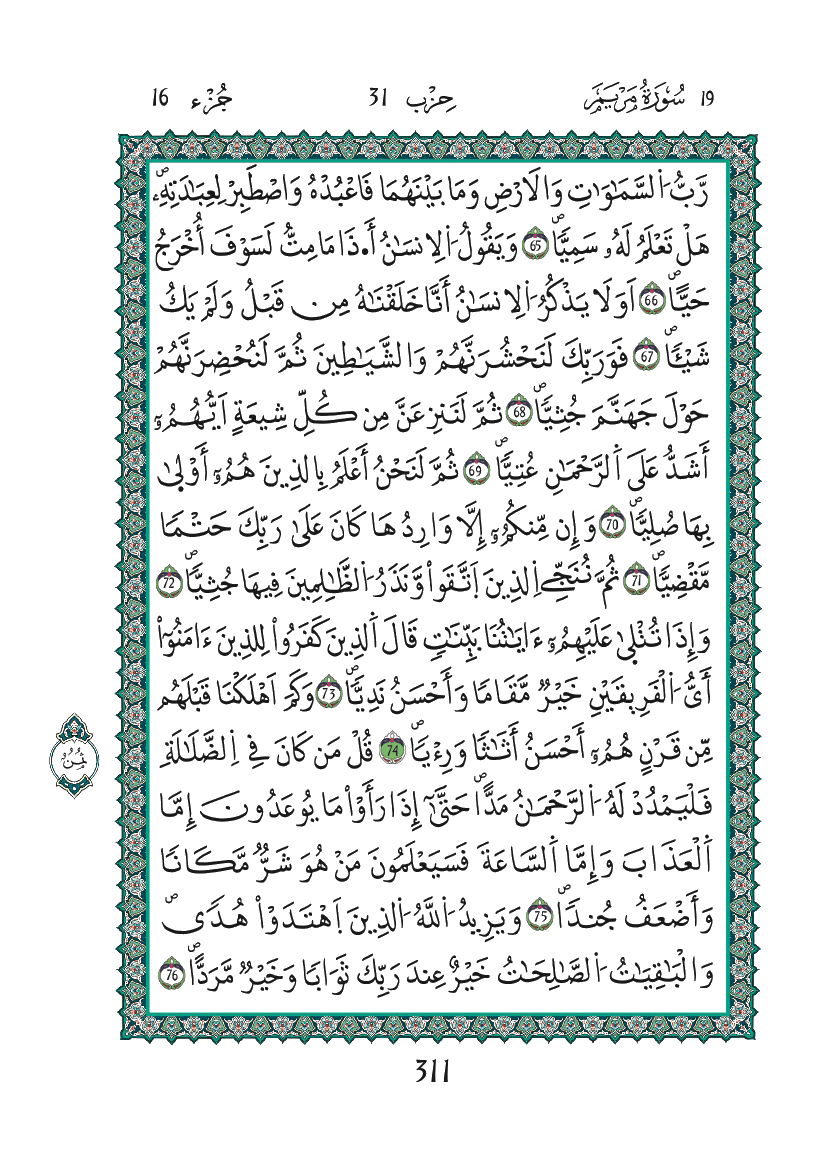 19 سُورَةُ مَرْيَمَ حِزْب 31 جُزْء 16
رَّبُّ اُ۬لسَّمَٰوَٰتِ وَالَارْضِ وَمَا بَيْنَهُمَا فَاعْبُدْهُ وَاصْطَبِرْ لِعِبَٰدَتِهِۦۖ
هَلْ تَعْلَمُ لَهُۥ سَمِيّاٗۖ 65 وَيَقُولُ اُ۬لِانسَٰنُ أَ.ذَا مَا مِتُّ لَسَوْفَ أُخْرَجُ
حَيّاٗۖ 66 اَوَلَا يَذْكُرُ اُ۬لِانسَٰنُ أَنَّا خَلَقْنَٰهُ مِن قَبْلُ وَلَمْ يَكُ
شَيْـٔاٗۖ 67 فَوَرَبِّكَ لَنَحْشُرَنَّهُمْ وَالشَّيَٰطِينَ ثُمَّ لَنُحْضِرَنَّهُمْ
حَوْلَ جَهَنَّمَ جُثِيّاٗۖ 68 ثُمَّ لَنَنزِعَنَّ مِن كُلِّ شِيعَةٍ اَيُّهُمُۥٓ
أَشَدُّ عَلَى اَ۬لرَّحْمَٰنِ عُتِيّاٗۖ 69 ثُمَّ لَنَحْنُ أَعْلَمُ بِالذِينَ هُمُۥٓ أَوْلۭيٰ
بِهَا صُلِيّاٗۖ 70 وَإِن مِّنكُمُۥٓ إِلَّا وَارِدُهَا كَانَ عَلَىٰ رَبِّكَ حَتْماٗ
مَّقْضِيّاٗۖ 71 ثُمَّ نُنَجِّے اِ۬لذِينَ اَ۪تَّقَواْ وَّنَذَرُ اُ۬لظَّٰلِمِينَ فِيهَا جُثِيّاٗۖ 72
وَإِذَا تُتْلۭيٰ عَلَيْهِمُۥٓ ءَايَٰتُنَا بَيِّنَٰتٖ قَالَ اَ۬لذِينَ كَفَرُواْ لِلذِينَ ءَامَنُوٓاْ
أَيُّ اُ۬لْفَرِيقَيْنِ خَيْرٞ مَّقَاماٗ وَأَحْسَنُ نَدِيّاٗۖ 73 وَكَمَ اَهْلَكْنَا قَبْلَهُم
مِّن قَرْنٍ هُمُۥٓ أَحْسَنُ أَثَٰثاٗ وَرِءْياٗۖ 74 قُلْ مَن كَانَ فِي اِ۬لضَّلَٰلَةِ
ثُمُن
فَلْيَمْدُدْ لَهُ اُ۬لرَّحْمَٰنُ مَدّاًۖ حَتَّىٰٓ إِذَا رَأَوْاْ مَا يُوعَدُونَ إِمَّا
اَ۬لْعَذَابَ وَإِمَّا اَ۬لسَّاعَةَ فَسَيَعْلَمُونَ مَنْ هُوَ شَرّٞ مَّكَاناٗ
وَأَضْعَفُ جُنداٗۖ 75 وَيَزِيدُ اُ۬للَّهُ اُ۬لذِينَ اَ۪هْتَدَوْاْ هُديٗۖ
وَالْبَٰقِيَٰتُ اُ۬لصَّٰلِحَٰتُ خَيْرٌ عِندَ رَبِّكَ ثَوَاباٗ وَخَيْرٞ مَّرَدّاًۖ 76
311